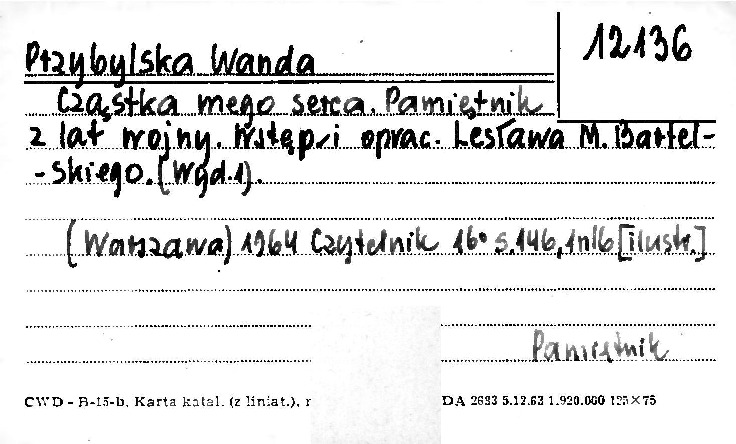 12136
Przybylska Wanda
Cząstka mego serca. Pamiętnik
z lat wojny. Wstęp i oprac. Lesława M. Bartel-
-skiego. (Wyd. 1).
(Warszawa) 1964 Czytelnik 16° s. 146, 1nlb [ilustr.]
Pamiętnik
CWD - B-15-b. Karta katal. (z liniat.), DA 2633 5.12.63 1.920.000 125×75